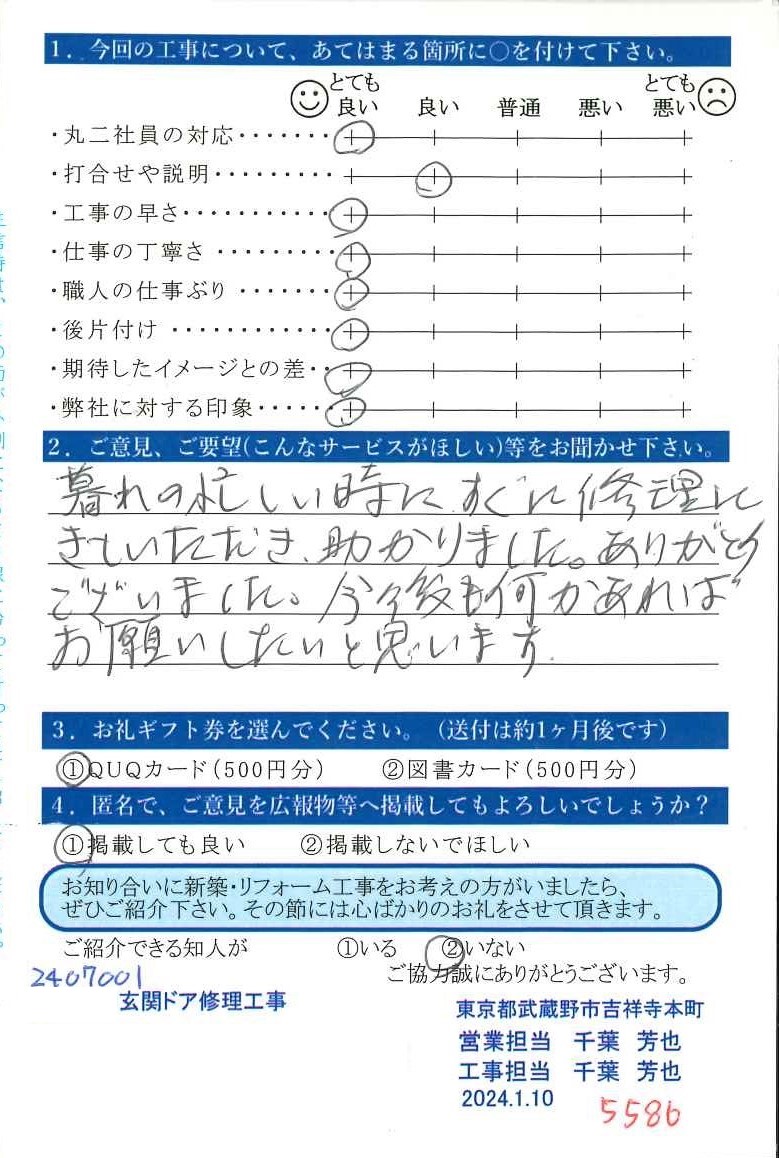 1．今回の工事について、あてはまる箇所に○を付けて下さい。
とても良い 良い 普通 悪い とても悪い
・丸二社員の対応・・・・・・・
・打合せや説明・・・・・・・・・
・工事の早さ・・・・・・・・・・・
・仕事の丁寧さ ・・・・・・・・・
・職人の仕事ぶり ・・・・・・・
・後片付け ・・・・・・・・・・・・
・期待したイメージとの差・・
・弊社に対する印象・・・・・
2．ご意見、ご要望(こんなサービスがほしい)等をお聞かせ下さい。
暮れの忙しい時に すぐに修理に
きていただき、助かりました。ありがとう
ございました。今後も何かあれば
お願いしたいと思います.
3．お礼ギフト券を選んでください。（送付は約1ヶ月後です）
①QUQカード（500円分） ②図書カード（500円分）
4．匿名で、ご意見を広報物等へ掲載してもよろしいでしょうか？
①掲載しても良い ②掲載しないでほしい
お知り合いに新築・リフォーム工事をお考えの方がいましたら、
ぜひご紹介下さい。その節には心ばかりのお礼をさせて頂きます。
ご紹介できる知人が ①いる ②いない
ご協力誠にありがとうございます。
2407001
玄関ドア修理工事
東京都武蔵野市吉祥寺本町
営業担当 千葉 芳也
工事担当 千葉 芳也
2024.1.10
5586